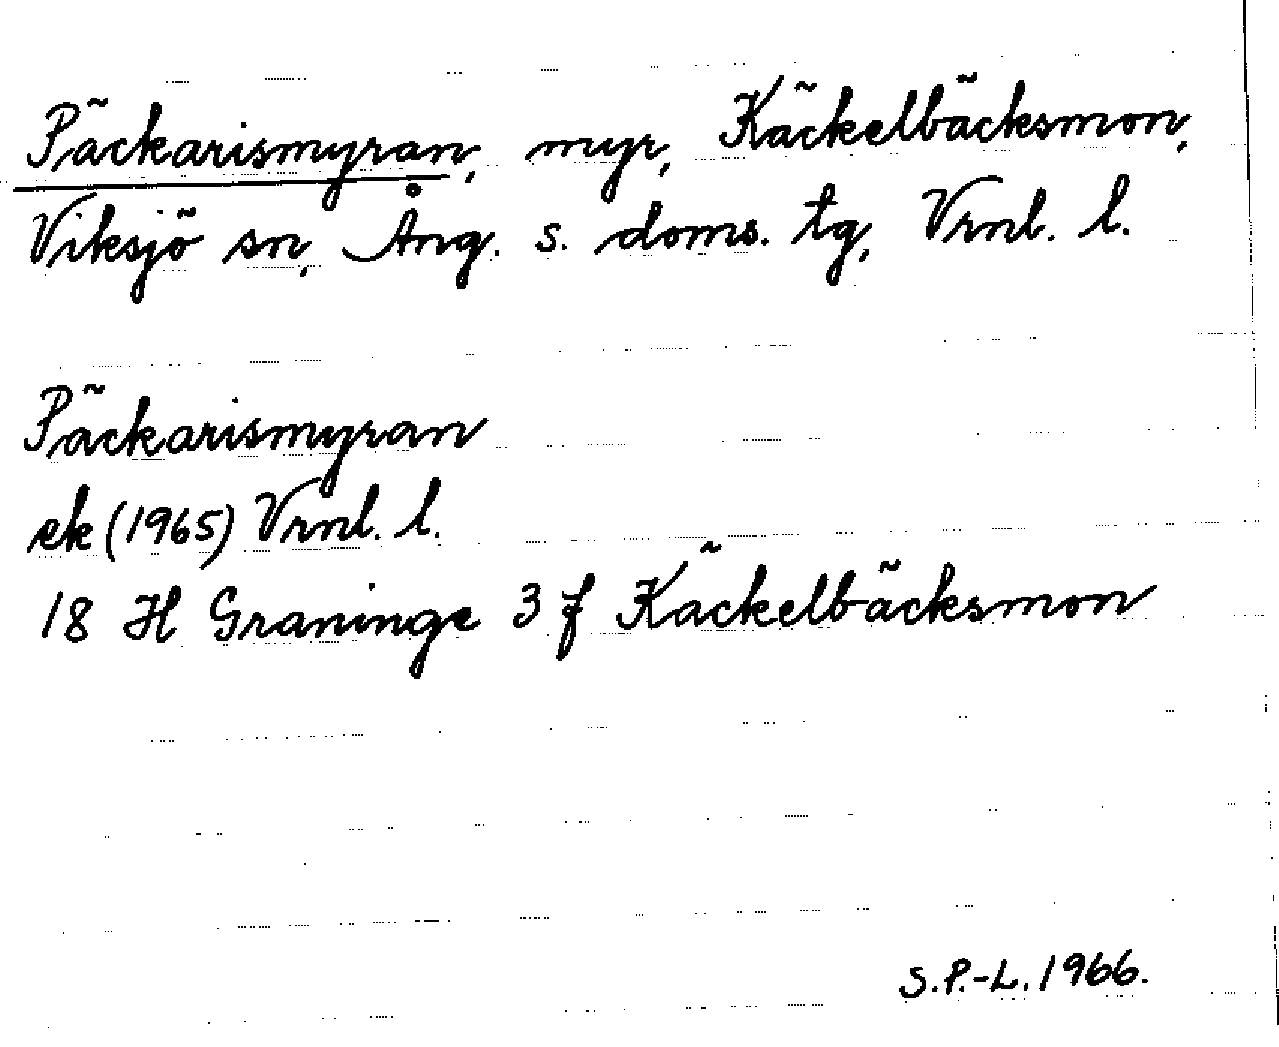 Päckarismyran, myr, Käckelbäcksmon,
Viksjö sn, Ång. s. doms. tg, Vrnl. l.
Päckarismyran
ek (1965) Vrnl. l.
18 H Graninge 3 f Käckelbäcksmon
S.P.-L. 1966.